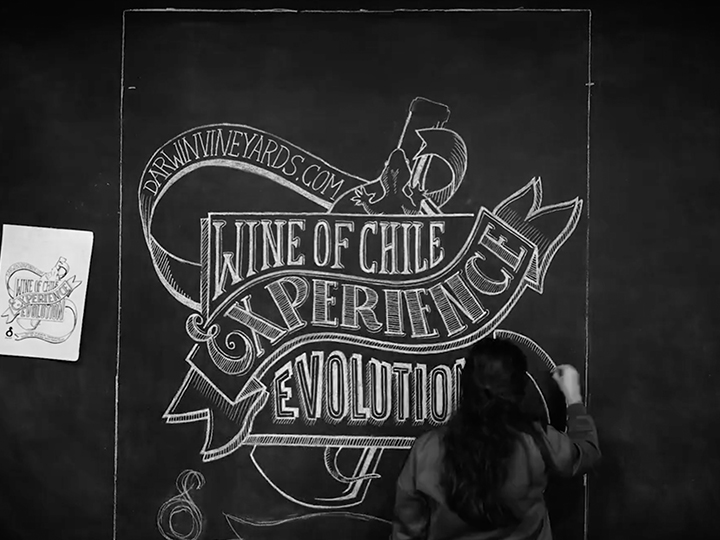 DARWINVINEYARDS.COM
WINE OF CHILE
EXPERIENCE
EVOLUTIO
WINE OF CHILE
EXPERIENCE
EVOLUTION